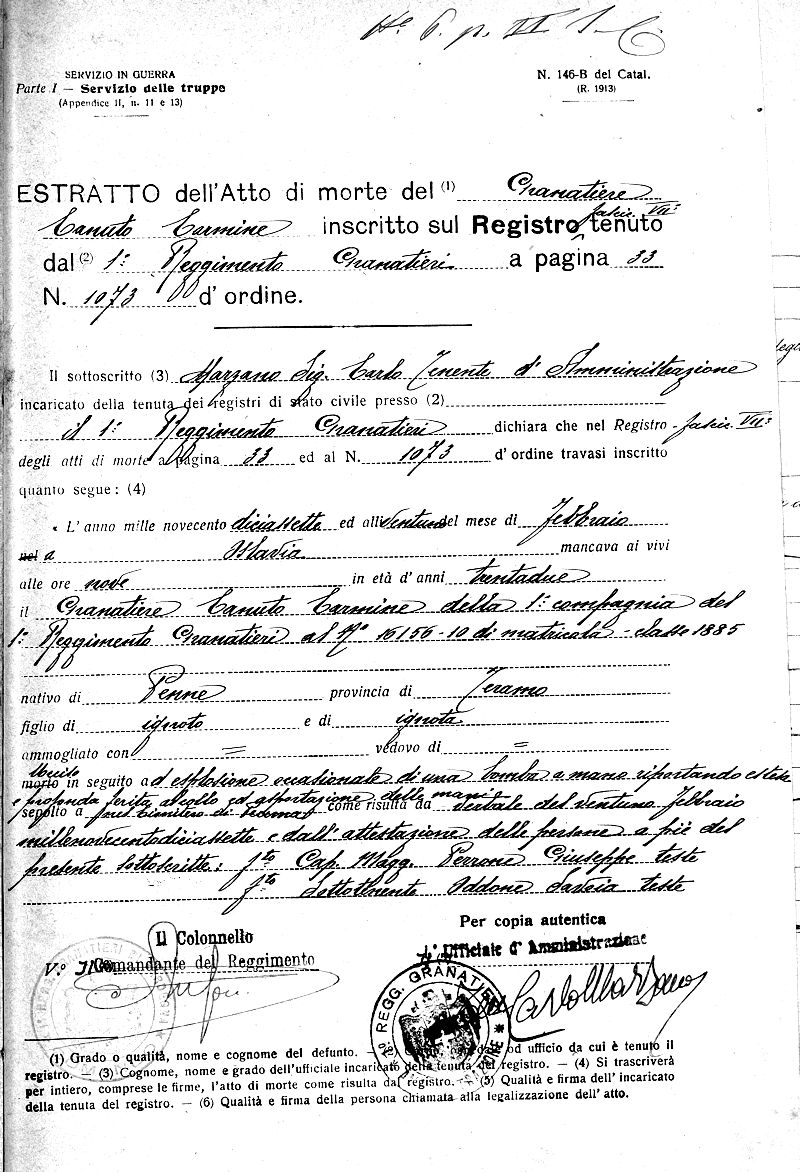 N. 6. p. II S. C
SERVIZIO IN GUERRA
Parte I — Servizio delle truppe
(Appendice II, n. 11 e 13)
N. 146-B del Catal.
(R. 1913)
ESTRATTO dell'Atto di morte del (1) Granatiere
Canuto Carmine inscritto sul Registro tenuto
dal (2) 1° Reggimento Granatieri a pagina 33
N. 1073 d'ordine.
Il sottoscritto (3) Marzano Sig. Carlo Tenente d'Amministrazione
incaricato della tenuta dei registri di stato civile presso (2)
il 1° Reggimento Granatieri dichiara che nel Registro
degli atti di morte a pagina 33 ed al N. 1073 d'ordine travasi inscritto
quanto segue: (4)
« L'anno mille novecento diciassette ed alli ventuno del mese di Febbraio
nel a Oslavia mancava ai vivi
alle ore nove in età d'anni trentadue
il Granatiere Canuto Carmine della 1° compagnia del
1° Reggimento Granatieri al N° 16156-10 di matricola - classe 1885
nativo di Penne provincia di Teramo
figlio di ignoto e di ignota
ammogliato con = vedovo di =
morto in seguito ad esplosione occasionale di una bomba a mano riportando estesa
e profonda ferita al collo ed asportazione delle mani
sepolto a come risulta da verbale del ventuno Febbraio
millenovecentodiciassette e dall'attestazione delle persone a piè del
presente sottoscritte: fto Cap. Magg. Perrone Giuseppe teste
fto Sottotenente Oddone Savoia teste
Il Colonnello
V.° Il Comandante del Reggimento
Per copia autentica
L'Ufficiale d'Amministrazione
Carlo Marzano
REGG. GRANATIERI
(1) Grado o qualità, nome e cognome del defunto. — od ufficio da cui è tenuto il
registro. — (3) Cognome, nome e grado dell'ufficiale incaricato della tenuta del registro. — (4) Si trascriverà
per intiero, comprese le firme, l'atto di morte come risulta dal registro. — (5) Qualità e firma dell'incaricato
della tenuta del registro. — (6) Qualità e firma della persona chiamata alla legalizzazione dell'atto.